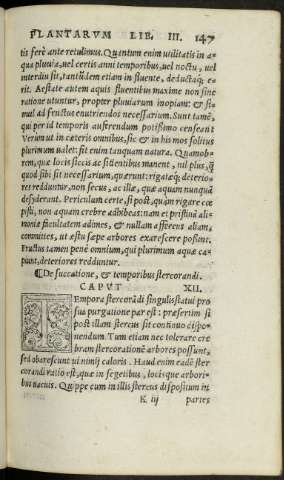 PLANTARVM LIB. III. 147
tis ferè ante retulimus. Quantum enim utilitatis in a-
qua pluuia, uel certis anni temporibus, uel noctu, uel
interdiu sit, tantũdem etiam in fluente, deductaq; e-
rit. Aestate autem aquis fluentibus maxime non sine
ratione utuntur, propter pluuiarum inopiam: & si-
mul ad fructus enutriendos necessarium. Sunt tamẽ,
qui per id temporis auferendum potissimo censeant
Verùm ut in cæteris omnibus, sic & in his mos solitus
plurimum ualet: sit enim tanquam natura. Quamob-
rem, quæ locis siccis ac sitientibus manent, nil plus, ꝗ̃
quod sibi sit necessarium, quærunt: rigatæq; deterio-
res redduntur, non secus, ac illæ, quæ aquam nunquã
desyderant. Periculum certe, si post, quàm rigare cœ
pisti, non aquam crebre adhibeas: nam et pristinã ali-
moniæ facultatem adimes, & nullam afferens aliam,
committes, ut æstu sæpe arbores exarescere possint.
Fructus tamen penè omnium, qui plurimum aquæ ca-
piunt, deteriores redduntur.
¶De & temporibus stercorandi.
CAPVT XII.
TEmpora stercorãdi singulis statui pro
sua purgatione par est: præsertim si
post illam stercus sit continuo dispo-
nendum. Tum etiam nec tolerare cre
bram stercorationẽ arbores possunt,
sed obarescunt ui nimij caloris. Haud enim eadẽ ster
corandi ratio est, quæ in segetibus, locisque arbori-
bus uacuis. Quippe cum in illis stercus dispositum in
K iij partes